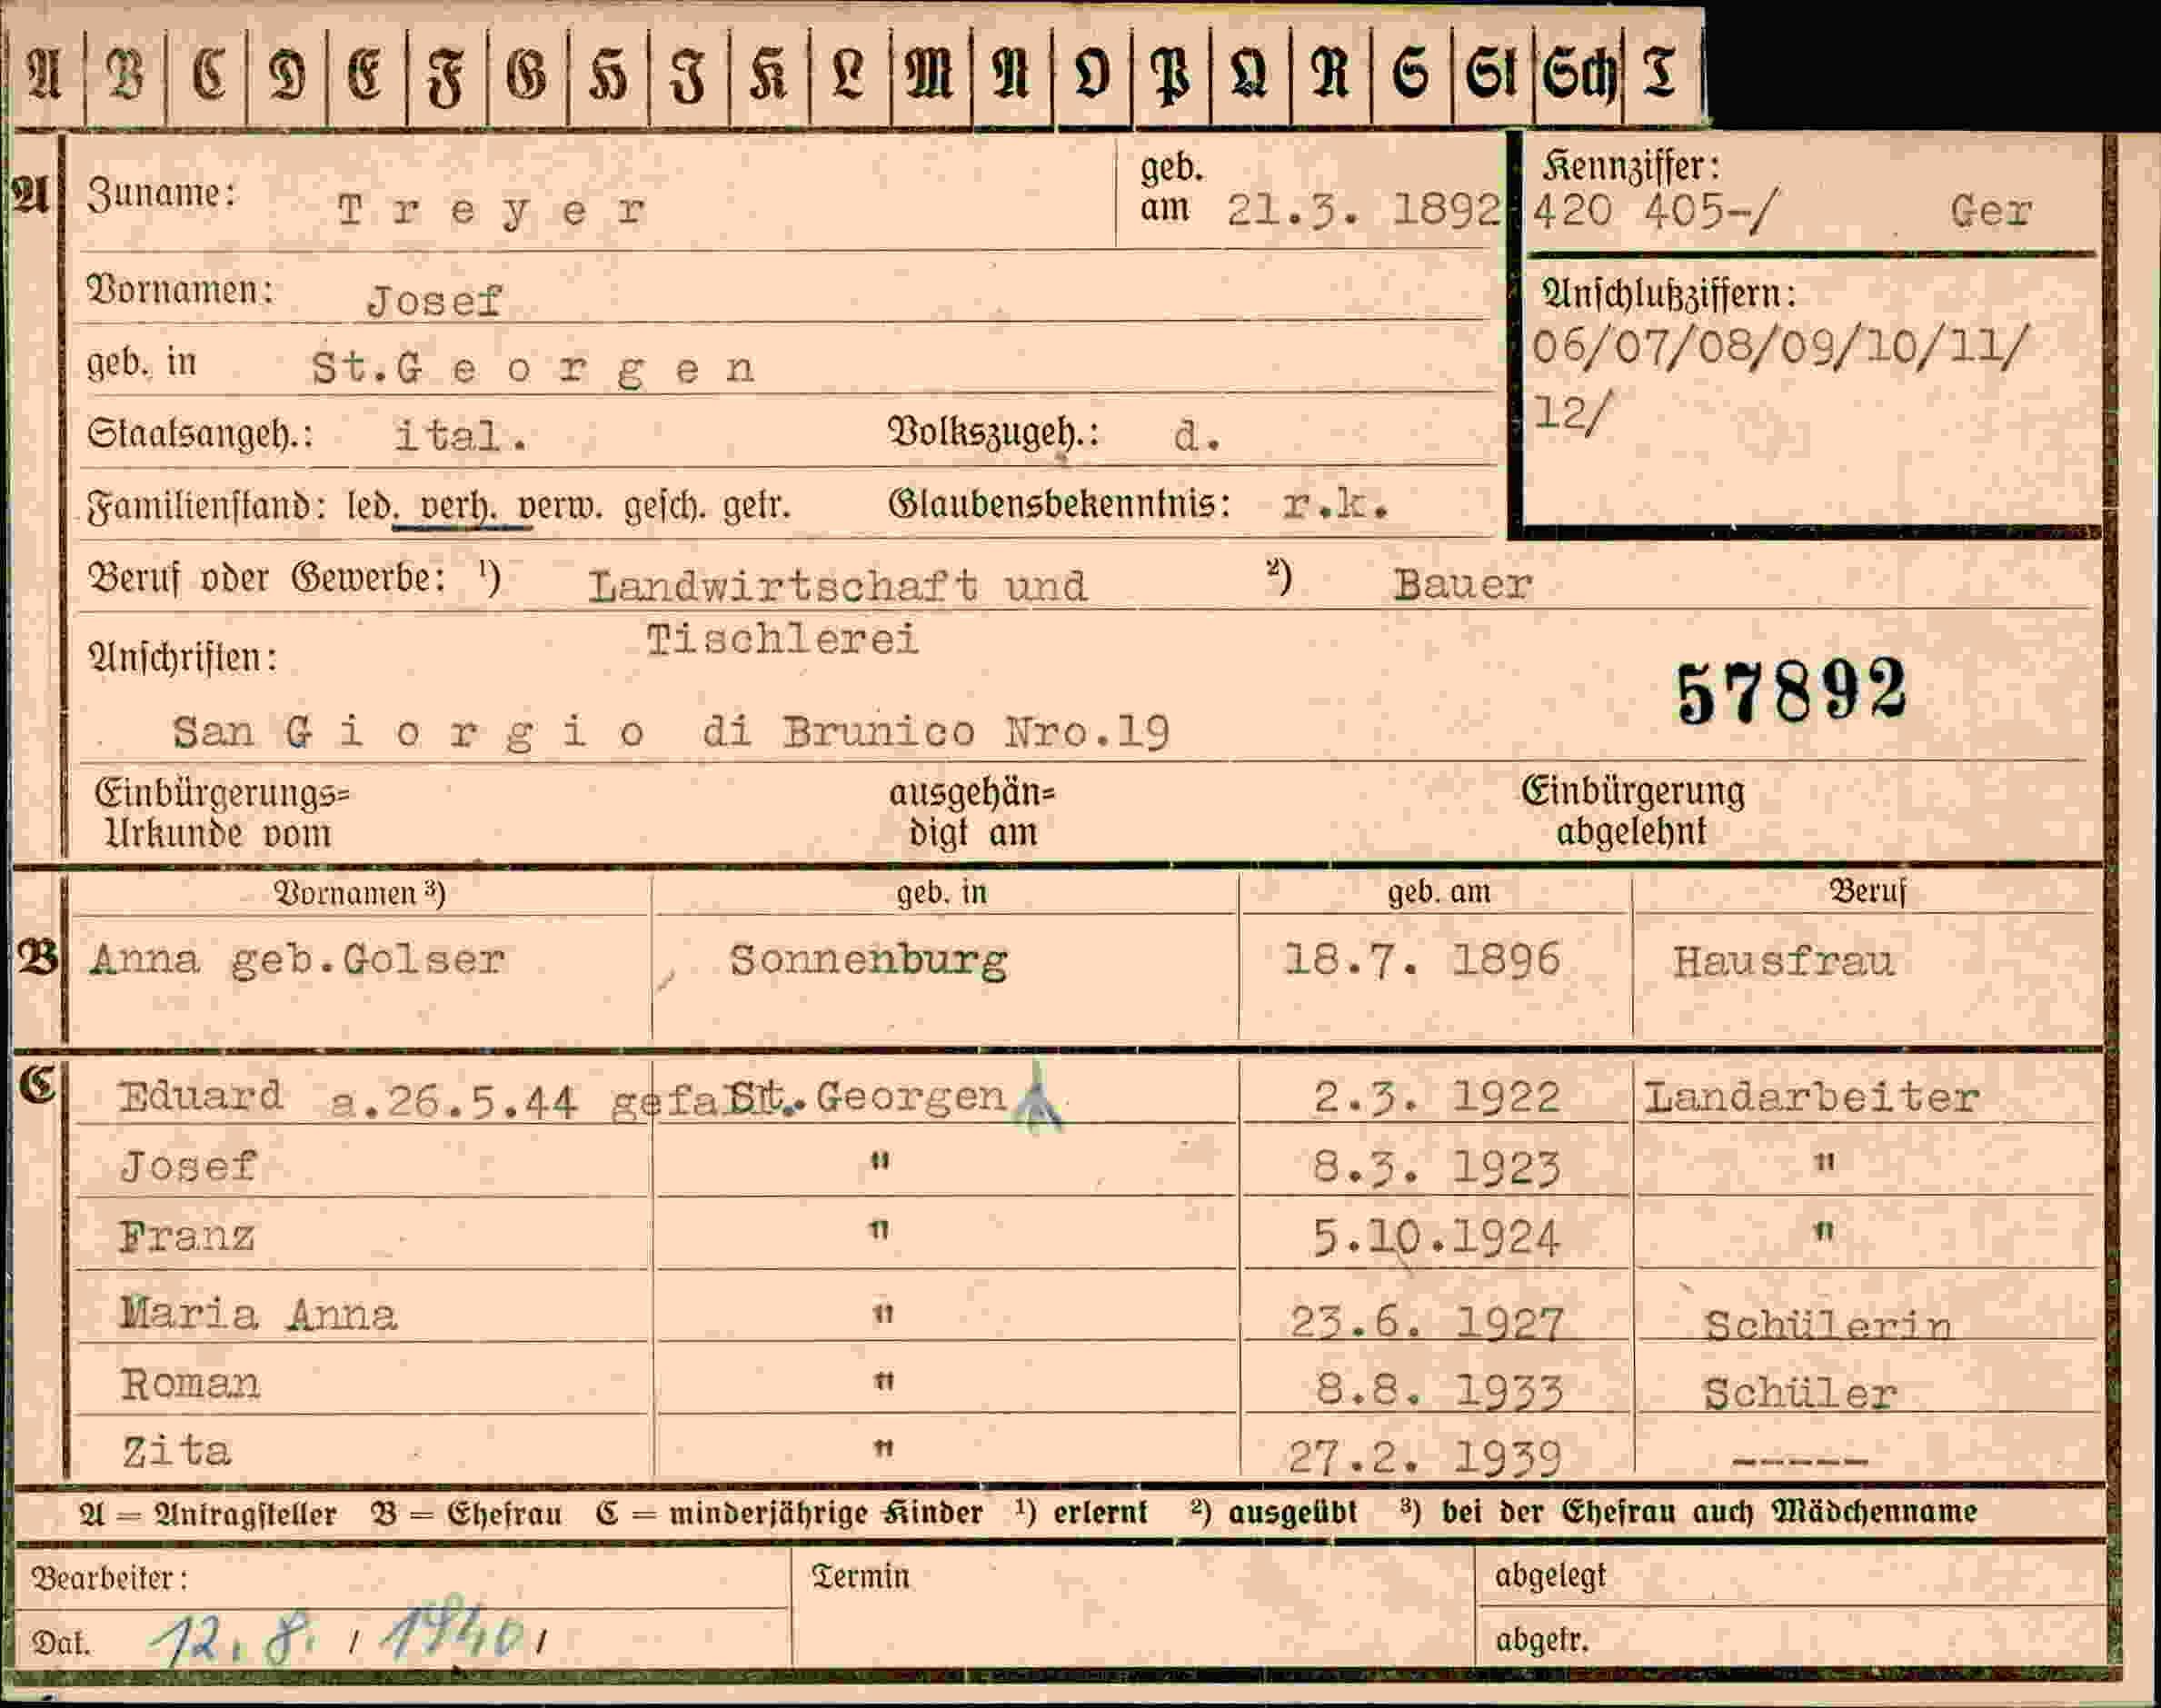 A B C D E F G H J K L M N O P Q R S St Sch T
A Zuname: Treyer geb. am 21.3. 1892 Kennziffer: 420 405-/ Ger
Vornamen: Josef Anschlußziffern:
geb. in St.Georgen 06/07/08/09/10/11/
12/
Staatsangeh.: ital. Volkszugeh.: d.
Familienstand: led. verh. verw. gesch. getr. Glaubensbekenntnis: r.k.
Beruf oder Gewerbe: ¹) Landwirtschaft und ²) Bauer
Tischlerei
Anschriften:
57892
San Giorgio di Brunico Nro.19
Einbürgerungs= ausgehän= Einbürgerung
Urkunde vom digt am abgelehnt
Vornamen ³) geb. in geb. am Beruf
B Anna geb.Golser Sonnenburg 18.7. 1896 Hausfrau
C Eduard a.26.5.44 gefa St. Georgen 2.3. 1922 Landarbeiter
Josef " 8.3. 1923 "
Franz " 5.10.1924 "
Maria Anna " 23.6. 1927 Schülerin
Roman " 8.8. 1933 Schüler
Zita " 27.2. 1939 -----
A = Antragsteller B = Ehefrau C = minderjährige Kinder ¹) erlernt ²) ausgeübt ³) bei der Ehefrau auch Mädchenname
Bearbeiter: Termin abgelegt
Dat. 12. 8. / 1940 / abgetr.